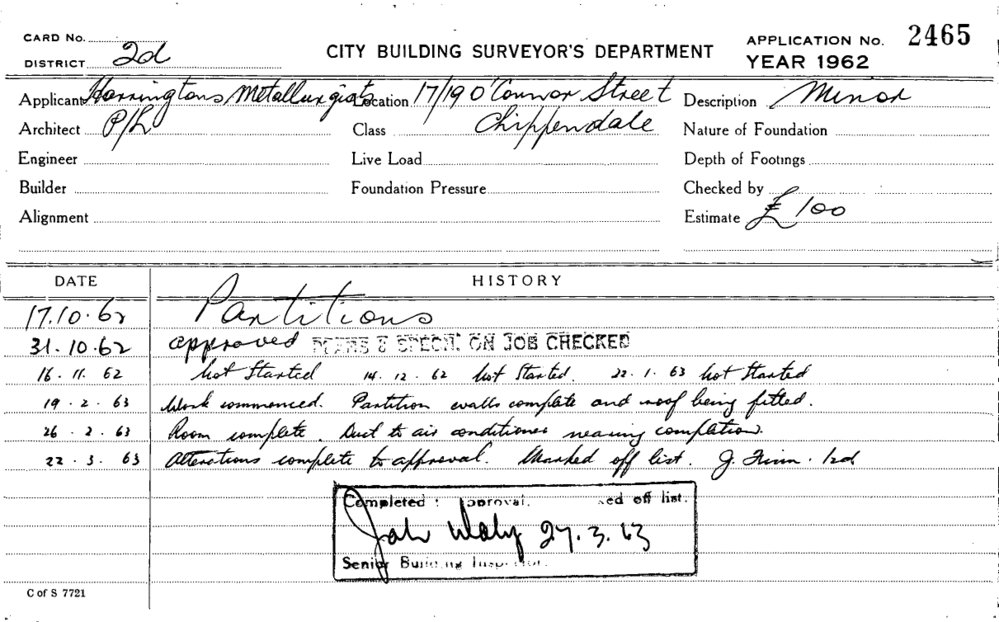 CARD No.
DISTRICT 2d
CITY BUILDING SURVEYOR'S DEPARTMENT
APPLICATION No. 2465
YEAR 1962
Applicant Harringtons Metallurgists Location 17/19 O'Connor Street Description Minor
Architect P/L Class Chippendale Nature of Foundation
Engineer Live Load Depth of Footings
Builder Foundation Pressure Checked by
Alignment Estimate £100
DATE HISTORY
17.10.62 Partitions
31.10.62 approved PLANS & SPECN. ON JOB CHECKED
16.11.62 Not Started 14.12.62 Not Started. 22.1.63 Not Started
19.2.63 Work commenced. Partition walls complete and roof being fitted.
26.2.63 Room complete. Duct to air conditioner nearing completion.
22.3.63 Alterations complete to approval. Marked off list. J.
Completed off list.
27.3.63
Senior Building Inspector.
C of S 7721